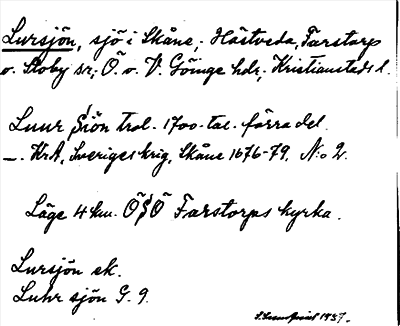 Lursjön, sjö i Skåne; Hästveda, Farstorp
o. Stoby sr; Ö. o. V. Göinge hdr; Kristianstads l.
Luur Siön trol. 1700-tal. förra del.
—. KrA, Sveriges krig, Skåne 1676-79. N:o 2.
Läge 4 km. ÖSÖ Farstorps kyrka.
Lursjön ek.
Luhr sjön G. 9.
1937.